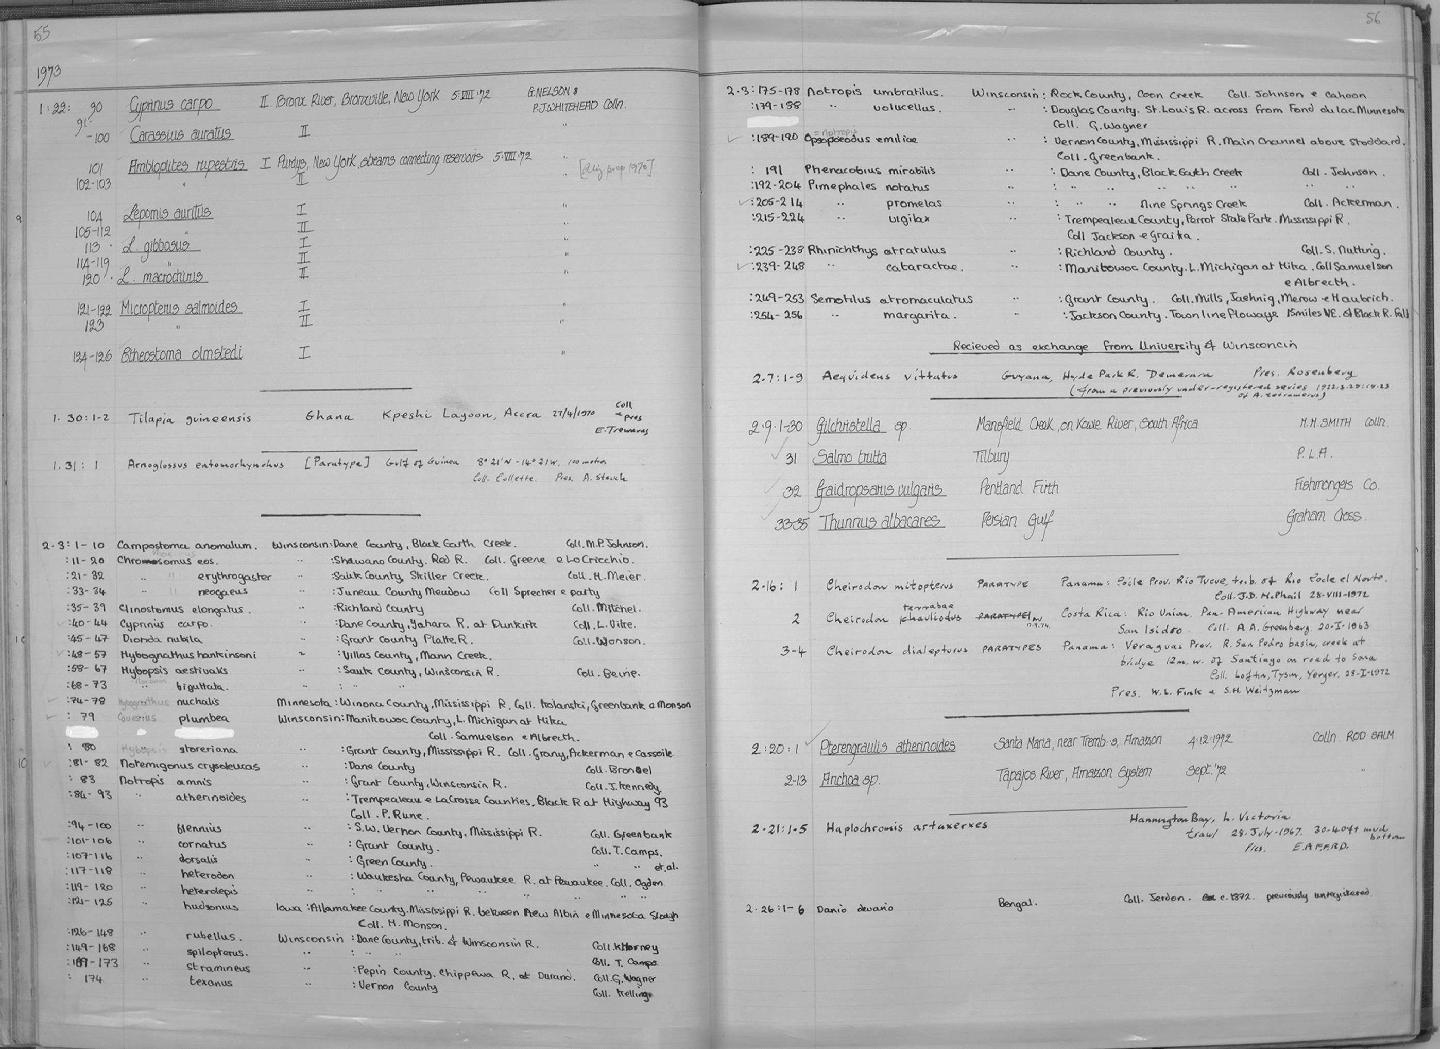 55
1973
1:22: 90 Cyprinus carpo II Bronx River, Bronxville, New York 5.VIII.'72 G.NELSON & P.J.WHITEHEAD Colln.
91-100 Carassius auratus II "
101 Ambloplites rupestris I Purdys, New York, streams connecting reservoirs 5.VIII.'72 "
102-103 " II " [Aliz prep 1976]
104 Lepomis auritus I "
105-112 II "
113 L. gibbosus I "
114-119 " II "
120 L. macrochirus II "
121-122 Micropterus salmoides I
123 " II "
124-126 Etheostoma olmstedi I "
1. 30:1-2 Tilapia guineensis Ghana Kpeshi Lagoon, Accra 27/4/1970 Coll & pres E. Trewavas
1.31: 1 Arnoglossus entomorhynchus [Paratype] Gulf of Guinea 8°21'N - 14°21'W. 100 metres
Coll. Collette. Pres. A. Stauch
2.3:1-10 Campostoma anomalum. Winsconsin: Dane County, Black Earth Creek. Coll. M.P. Johnson.
:11-20 Chrosomus eos. " :Shawano County. Red R. Coll. Greene e LoCricchio.
:21-32 " erythrogaster " :Sauk County Skiller Creek. Coll. H. Meier.
:33-34 " neogaeus " :Juneau County Meadow Coll Sprecher e party
:35-39 Clinostomus elongatus. " :Richland County Coll. Mitchel.
:40-44 Cyprinus carpo. " :Dane County, Yahara R. at Dunkirk Coll. L. Vike.
:45-47 Dionda nubila " :Grant County Platte R. Coll. Wonson.
:48-57 Hybognathus hankinsoni " :Villas County, Mann Creek.
:58-67 Hybopsis aestivalis " :Sauk County, Winsconsin R. Coll. Beine.
:68-73 " biguttata. " : " "
:74-78 Hybognathus nuchalis Minnesota :Winona County, Mississippi R. Coll. Kolanski, Greenbank e Monson
: 79 Couesius plumbea Winsconsin: Manitowoc County, L. Michigan at Hika
Coll. Samuelson e Albrecth.
: 80 Hybopsis storeriana " :Grant County, Mississippi R. Coll. Grany, Ackerman e Cassoile
:81-82 Notemigonus crysoleucas " :Dane County Coll. Brondel
: 83 Notropis amnis " :Grant County, Winsconsin R. Coll. J. Kennedy.
:84-93 " atherinoides " :Trempealeau e LaCrosse Counties, Black R at Highway 93
Coll. P. Rune.
:94-100 " blennius " :S.W. Vernon County, Mississippi R. Coll. Greenbank
:101-106 " cornatus " :Grant County. Coll. T. Camps.
:107-116 " dorsalis " :Green County. " " et.al.
:117-118 " heterodon " :Waukesha County, Pewaukee R. at Pewaukee. Coll. Ogden
:119-120 " heterolepis " : " " " "
:121-125 " hudsonius Iowa :Allamakee County. Mississippi R. between New Albin e Minnesota Slough
Coll. H. Monson.
:126-148 " rubellus. Winsconsin :Dane County, trib. of Winsconsin R. Coll. K. Horney
:149-168 " spilopterus. " : " " Coll. T. Camps
:169-173 " stramineus " :Pepin County. Chippewa R. at Durand. Coll. G. Wagner
: 174 " texanus " :Vernon County Coll. Kellinge
56
2.3:175-178 Notropis umbratilus. Winsconsin: Rock County, Coon Creek Coll. Johnson e Cahoon
:179-188 " volucellus. " :Douglas County. St. Louis R. across from Fond du lac Minnesota
Coll. G. Wagner
= Notropis
:189-190 Opsopoeodus emiliae " :Vernon County, Mississippi R. Main Channel above Stoddard.
Coll. Greenbank.
: 191 Phenacobius mirabilis " :Dane County, Black Earth Creek Coll. Johnson.
:192-204 Pimephales notatus " : " " " " "
:205-214 " promelas " : " " Nine Springs Creek Coll. Ackerman.
:215-224 " vigilax " :Trempealeau County, Perrot State Park. Mississippi R.
Coll Jackson e Graika.
:225-238 Rhinichthys atratulus " :Richland County. Coll. S. Nutting.
:239-248 " cataractae. " :Manitowoc County. L. Michigan at Hika. Coll Samuelson
e Albrecth.
:249-253 Semotilus atromaculatus " :Grant County. Coll. Mills, Jaehnig, Merow e Haubrich.
:254-256 " margarita. " :Jackson County. Townline Flowage 15miles NE. of Black R. Falls
Recieved as exchange from University of Winsconcin
2.7:1-9 Aequidens vittatus Guyana, Hyde Park R. Demerara Pres. Rosenberg
(from a previously under-registered series 1922.3.29:14.23
2.9.1-30 Gilchristella sp. Mansfield Creek, on Kowie River, South Africa M.M. SMITH Colln.
31 Salmo trutta Tilbury P.L.A.
32 Gaidropsarus vulgaris Pentland Firth Fishmongers Co.
33-35 Thunnus albacares Persian Gulf Graham Cross.
2.16: 1 Cheirodon mitopterus PARATYPE Panama: Cocle Prov. Rio Tucue, trib. of Rio Cocle el Norte.
Coll. J.D. McPhail 28-VIII-1972
terrabae
2 Cheirodon khauliodus PARATYPE Costa Rica: Rio Union. Pan-American Highway near
San Isidro. Coll. A.A. Greenberg 20-I-1963
3-4 Cheirodon dialepturus PARATYPES Panama: Veraguas Prov. R. San Pedro basin, creek at
bridge 12m. w. of Santiago on road to Sona
Coll. Loftin, Tyson, Yerger. 28-I-1972
Pres. W.L. Fink & S.H. Weitzman
2:20:1 Pterengraulis atherinoides Santa Maria, near Tremb-s, Amazon 4.12.1972 Colln. ROD SALM
2-13 Anchoa sp. Tapajos River, Amazon System Sept. '72 "
2.21:1-5 Haplochromis artaxerxes Hannington Bay, L. Victoria
trawl 28.July-1967. 30-40ft mud bottom
Pres. E.A.F.F.R.O.
2.26:1-6 Danio devario Bengal. Coll. Jerdon. c. 1872. previously unregistered